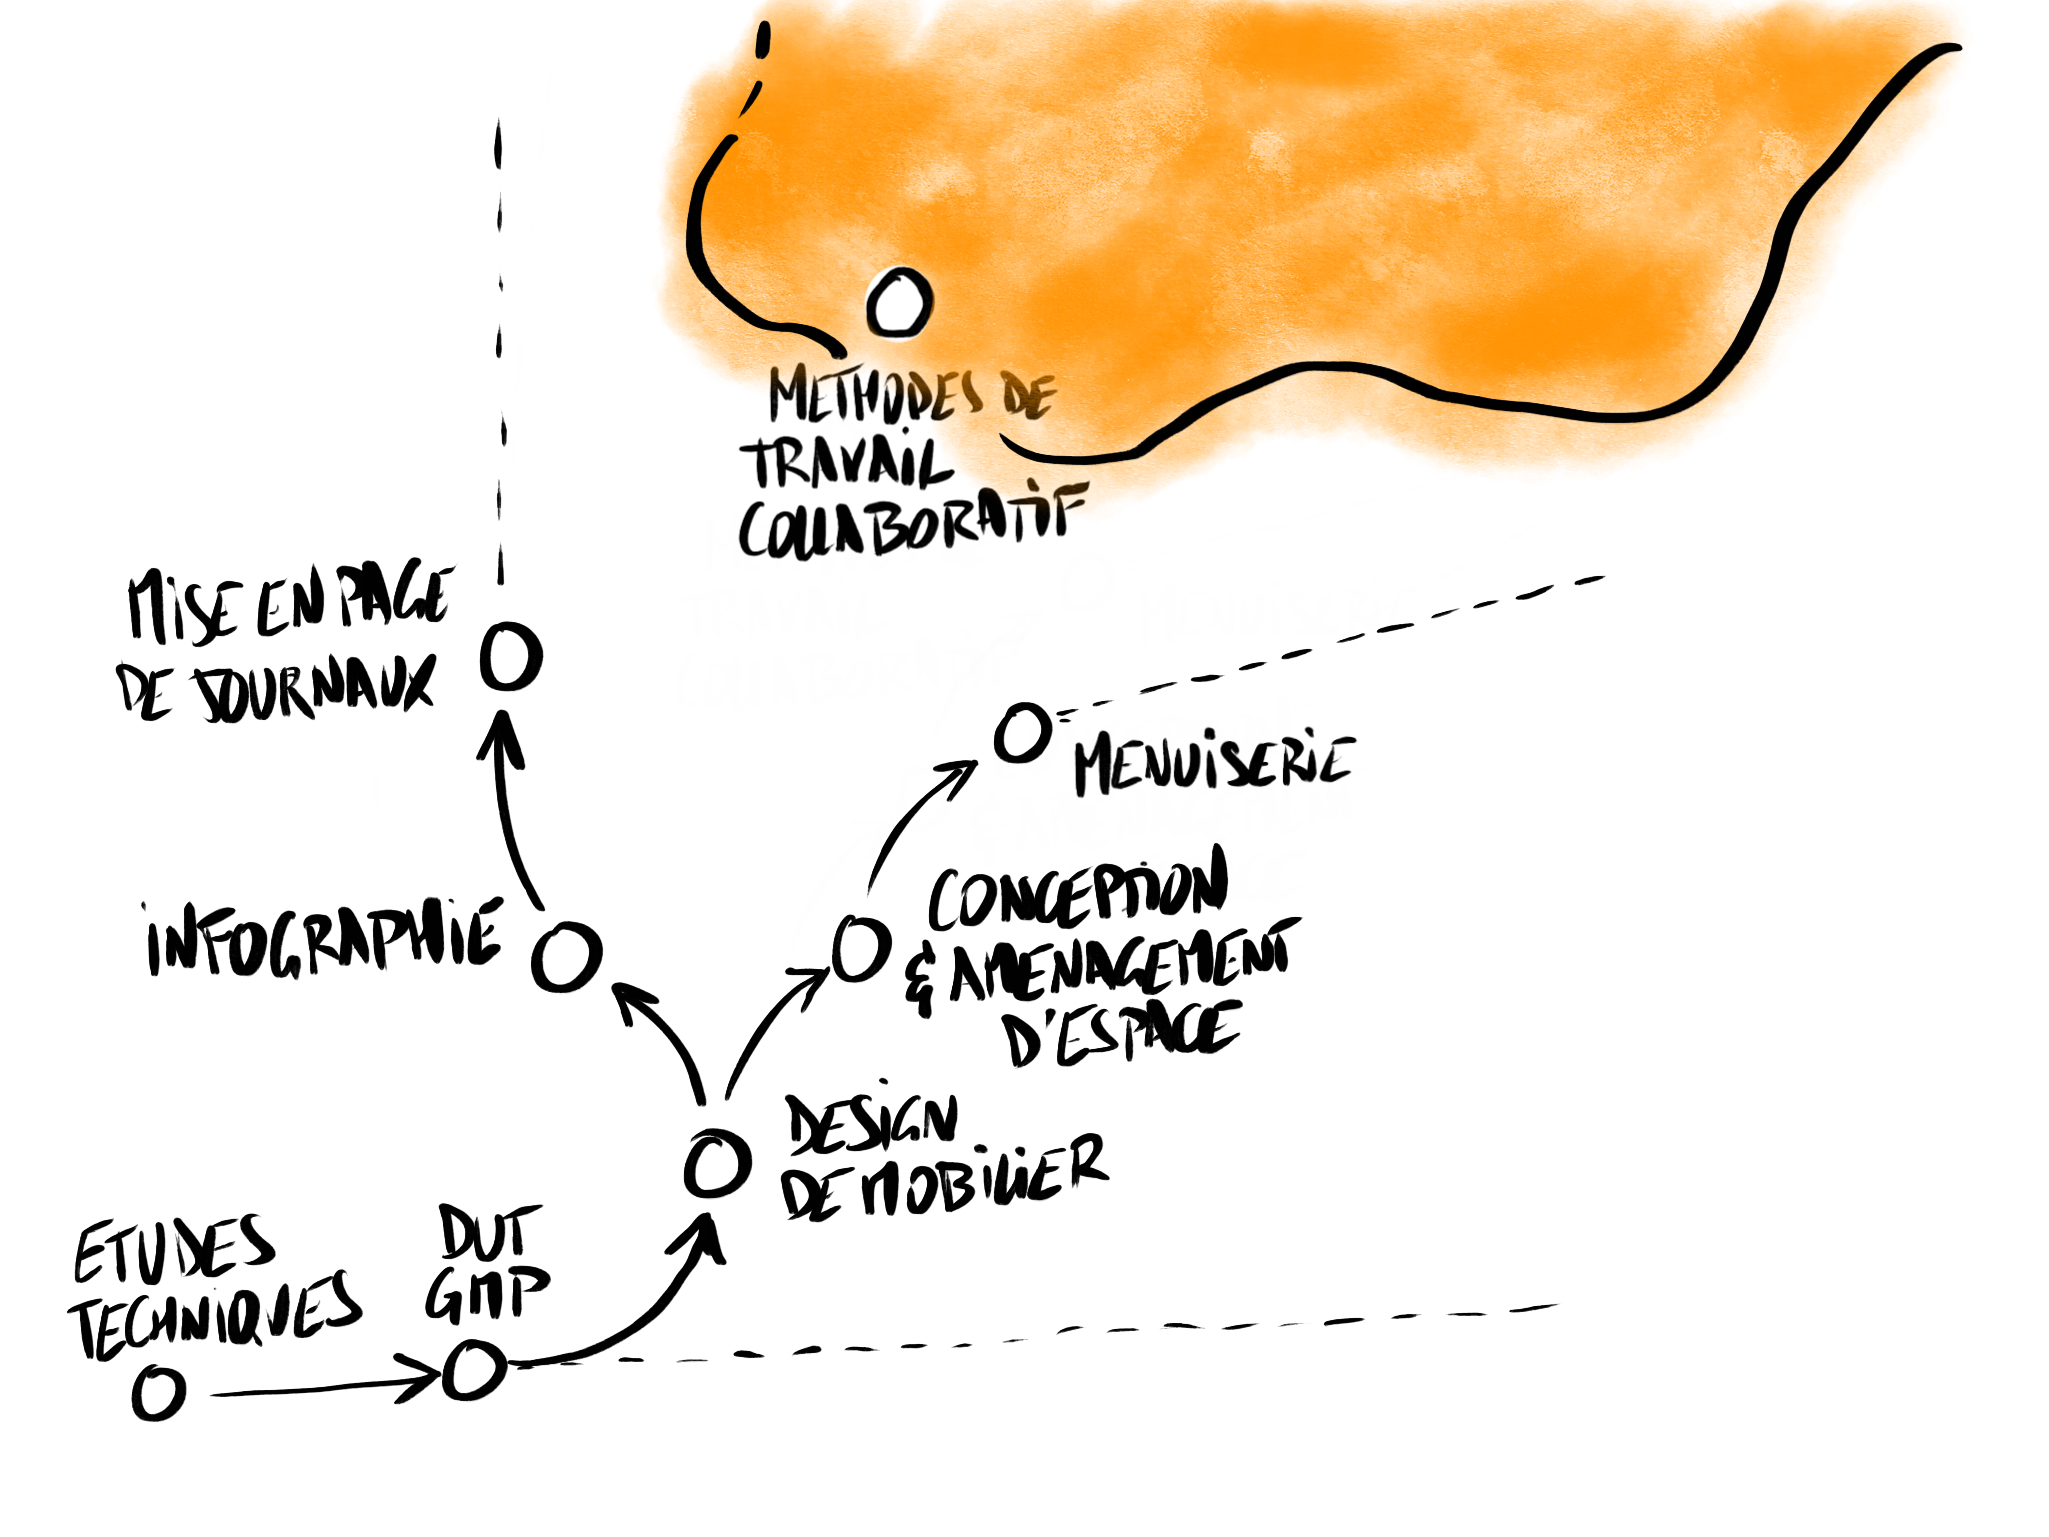 METHODES DE
TRAVAIL
COLLABORATIF
MISE EN PAGE
DE JOURNAUX
MENUISERIE
INFOGRAPHIE
CONCEPTION
& AMENAGEMENT
D'ESPACE
DESIGN
DE MOBILIER
ETUDES
TECHNIQUES
DUT
GMP